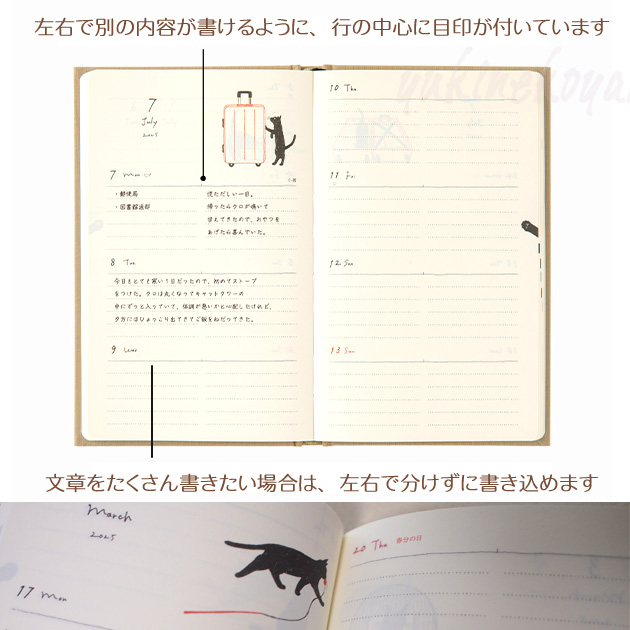 左右で別の内容が書けるように、行の中心に目印が付いています
yukinekoya
7
July
2025
7 Mon
小暑
・郵便局
・図書館返却
慌ただしい一日。
帰ったらクロが鳴いて
甘えてきたので、おやつを
あげたら喜んでいた。
8 Tue
今日もとても寒い1日だったので、初めてストーブ
をつけた。クロは丸くなってキャットタワーの
中にずっと入っていて、体調が悪いかと心配したけれど、
夕方にはひょっこり出てきてご飯をねだってきた。
9 Wed
10 Thu
11 Fri
12 Sat
13 Sun
文章をたくさん書きたい場合は、左右で分けずに書き込めます
March
2025
17 Mon
20 Thu 春分の日